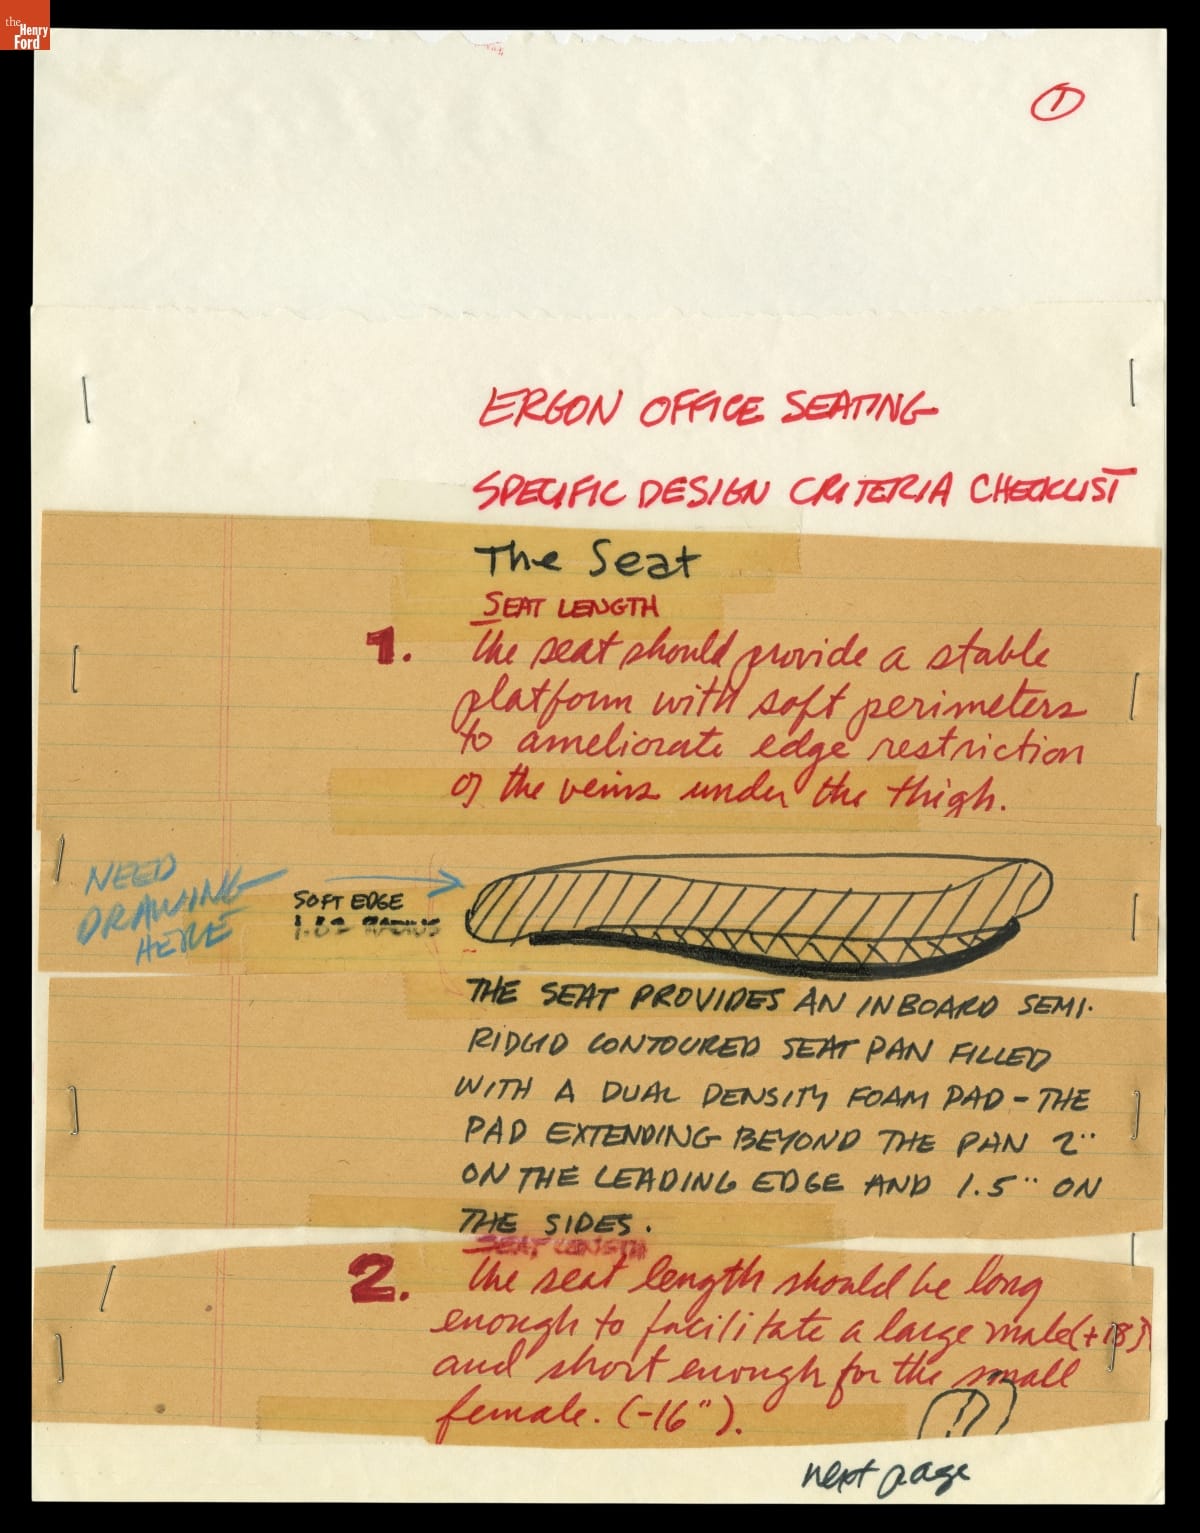 the
Henry
Ford
1
ERGON OFFICE SEATING
SPECIFIC DESIGN CRITERIA CHECKLIST
The Seat
SEAT LENGTH
1. The seat should provide a stable
platform with soft perimeters
to ameliorate edge restriction
of the veins under the thigh.
NEED
DRAWING
HERE
SOFT EDGE
RADIUS
THE SEAT PROVIDES AN INBOARD SEMI-
RIDGID CONTOURED SEAT PAN FILLED
WITH A DUAL DENSITY FOAM PAD - THE
PAD EXTENDING BEYOND THE PAN 2"
ON THE LEADING EDGE AND 1.5" ON
THE SIDES.
SEAT LENGTH
2. The seat length should be long
enough to facilitate a large male (+18")
and short enough for the small
female. (-16").
next page